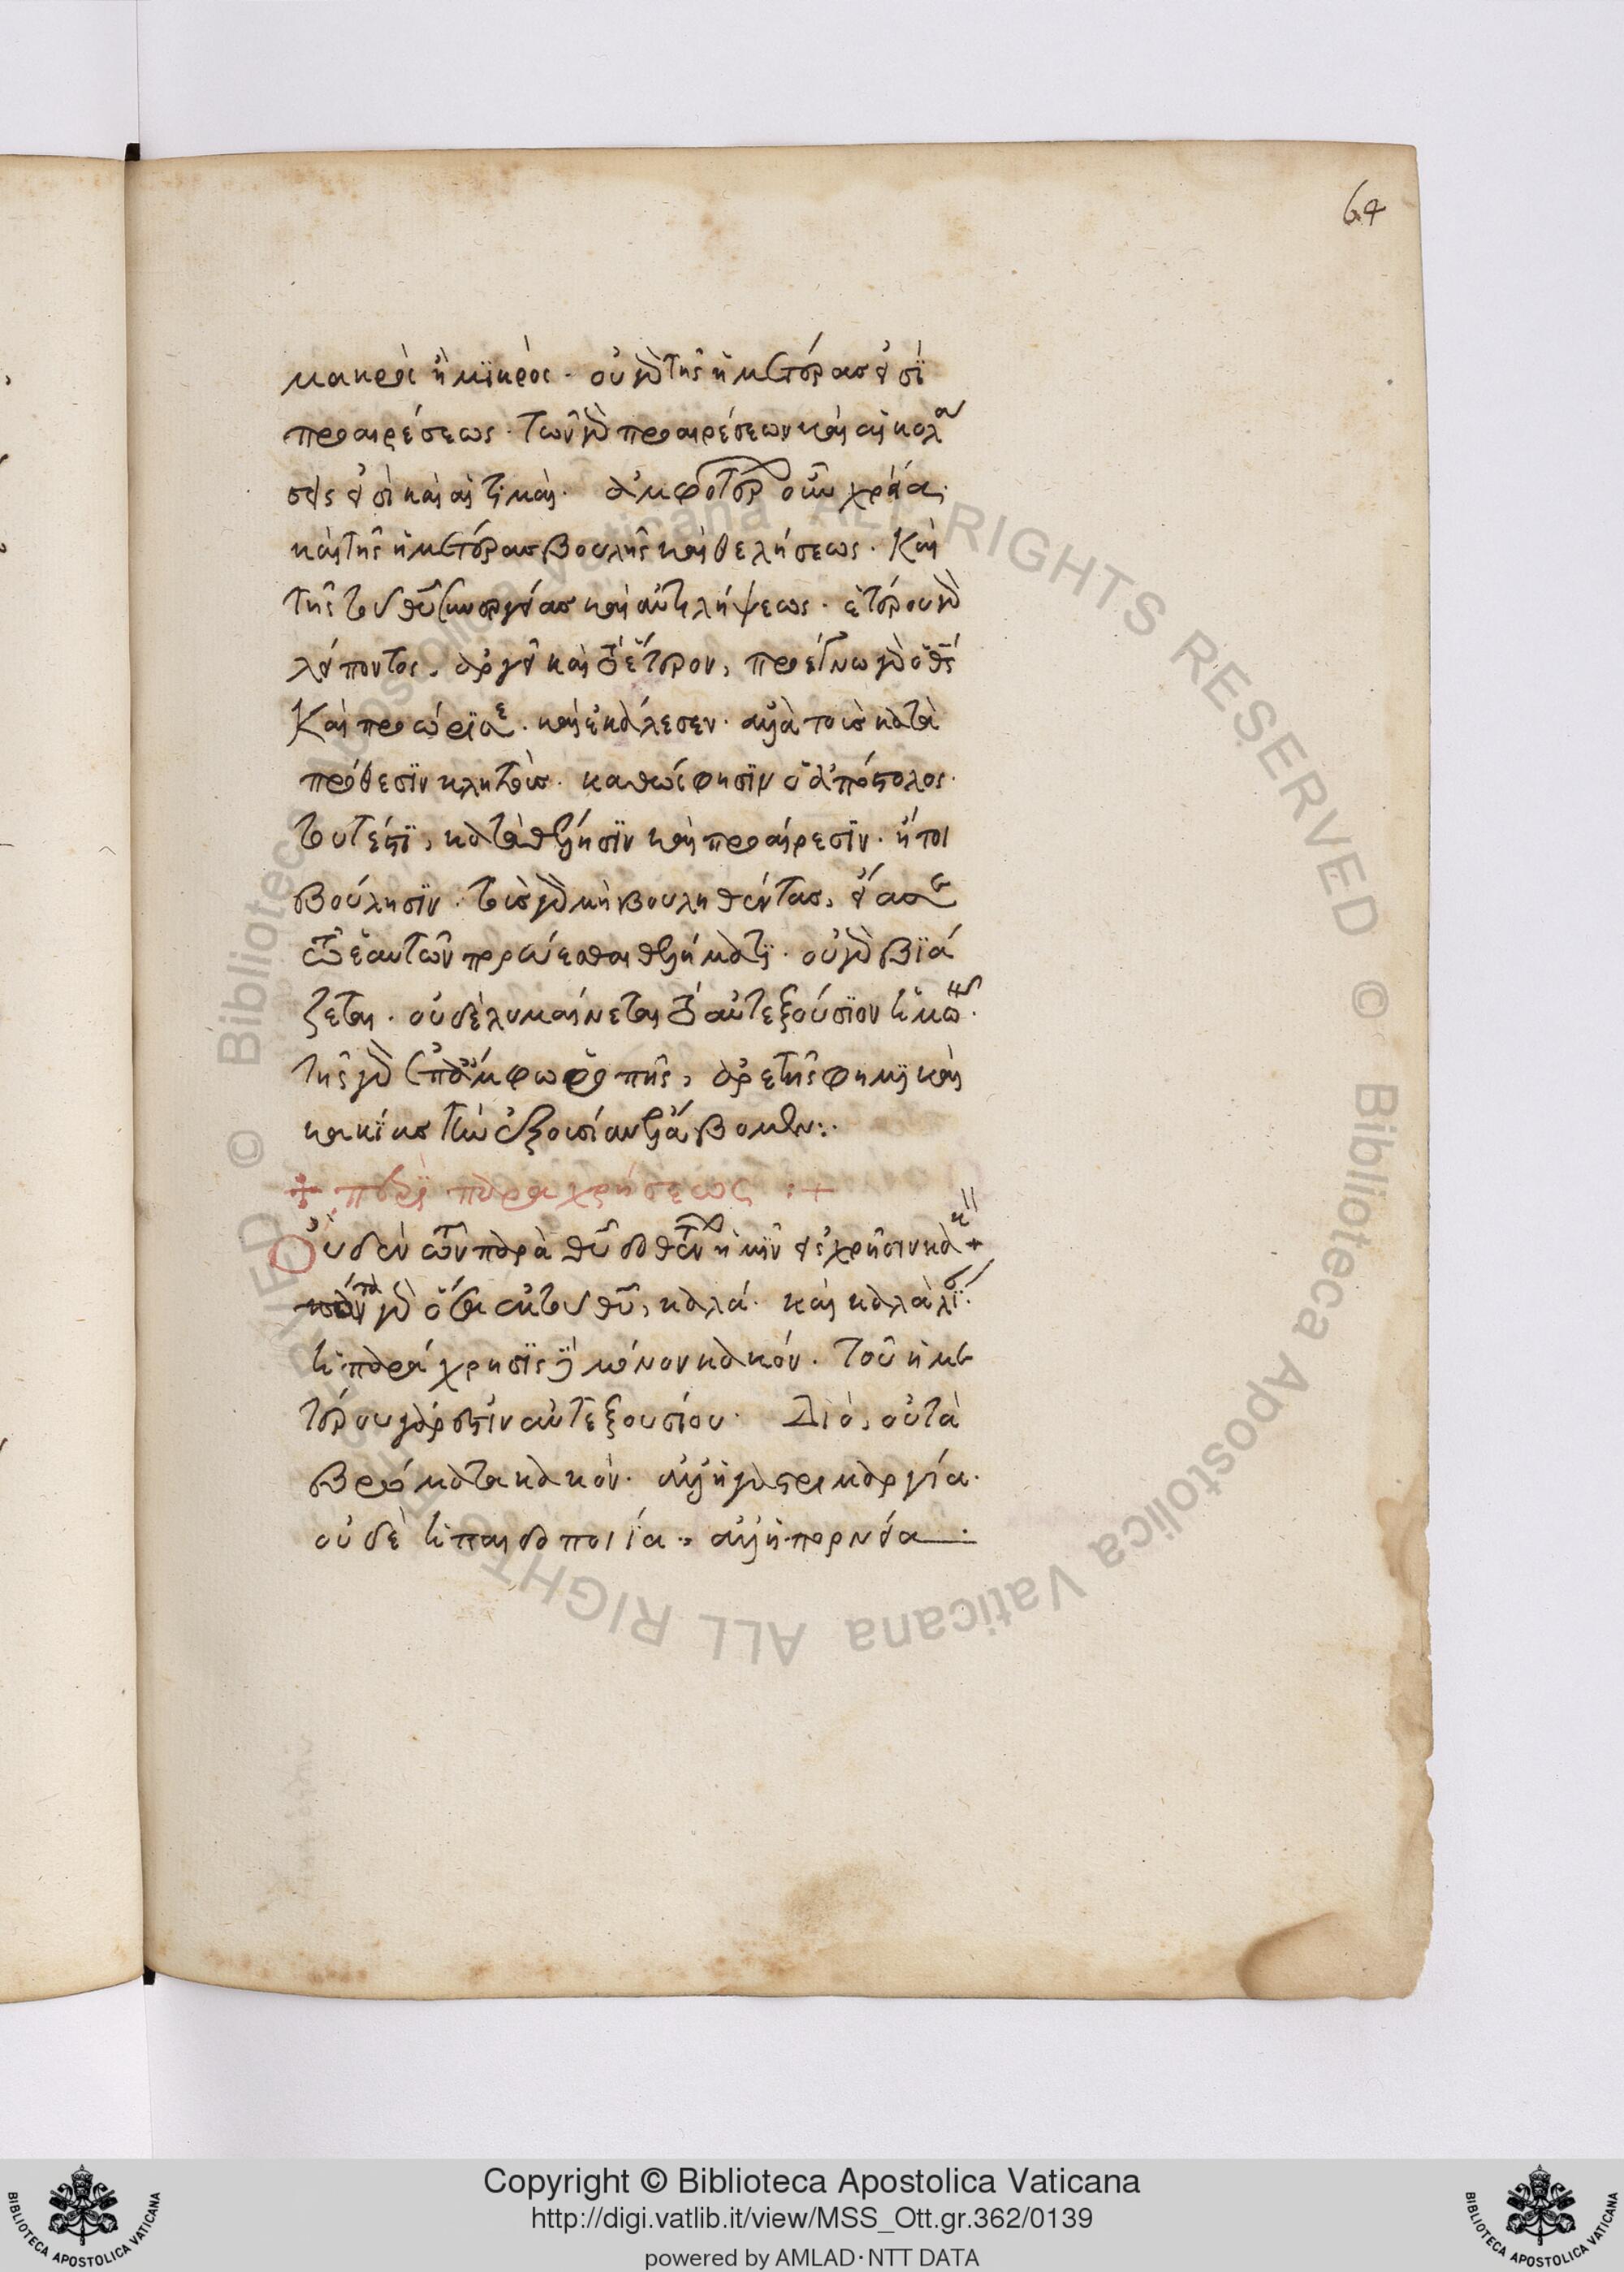 64
μακρὸς ἢ μϊκρός. οὐ γὰρ τῆς ἡμετέρας εἰσῒ
προαιρέσεως. τῶν γὰρ προαιρέσεων καὶ αἱ κολά
σεις εἰσὶ καὶ αἱ τιμαὶ. ἀμφοτέρων οὖν χρεία.
καὶ τῆς ἡμετέρας βουλῆς καὶ θελήσεως. Καὶ
τῆς τοῦ θῦ συνεργείας καὶ ἀντιλήψεως. ἑτέρου γὰρ
λείποντος, ἀργεῖ καὶ τὸ ἕτερον, προέγνω γὰρ ὁ θς
Καὶ προώρϊσε. καὶ ἐκάλεσεν. ἀλλὰ τοὺς κατὰ
πρόθεσϊν κλητοὺς. καθώς φησϊν ὁ ἀπόστολος.
τουτέστϊ, κατὰ θέλησϊν καὶ προαίρεσϊν. ἤτοι
βούλησϊν. τοὺς γὰρ μὴ βουληθέντας, εἴασε
τῷ ἑαυτῶν πορεύεσθαι θελήματϊ. οὐ γὰρ βϊά
ζεται. οὐδὲ λυμαίνεται τὸ αὐτεξούσϊον ἡμῶν.
τῆς γὰρ ἐπ' ἄμφω ῥοπῆς, ἀρετῆς φημϊ καὶ
κακϊας τὴν ἐξουσίαν ἐλάβομεν:.
+ περϊ παραχρήσεως :+
Οὐδὲν τῶν παρὰ θῦ δοθέντων ἡμῖν εἰς χρῆσιν κακὸν
πάντα γὰρ ὅσα ἐκ τοῦ θῦ, καλά. καὶ καλὰ λίαν.
ἡ παράχρησϊς δὲ μόνον κακόν. τοῦ ἡμε
τέρου γάρ ἐστϊν αὐτεξουσίου. Διὸ, οὐ τὰ
βρώματα κακὸν. ἀλλ' ἡ γαστριμαργία.
οὐδὲ ἡ παιδοποιία, ἀλλ' ἡ πορνεία.
Copyright © Biblioteca Apostolica Vaticana
http://digi.vatlib.it/view/MSS_Ott.gr.362/0139
powered by AMLAD·NTT DATA
BIBLIOTECA APOSTOLICA VATICANA
BIBLIOTECA APOSTOLICA VATICANA
© Biblioteca Apostolica Vaticana ALL RIGHTS RESERVED © Biblioteca Apostolica Vaticana ALL RIGHTS RESERVED